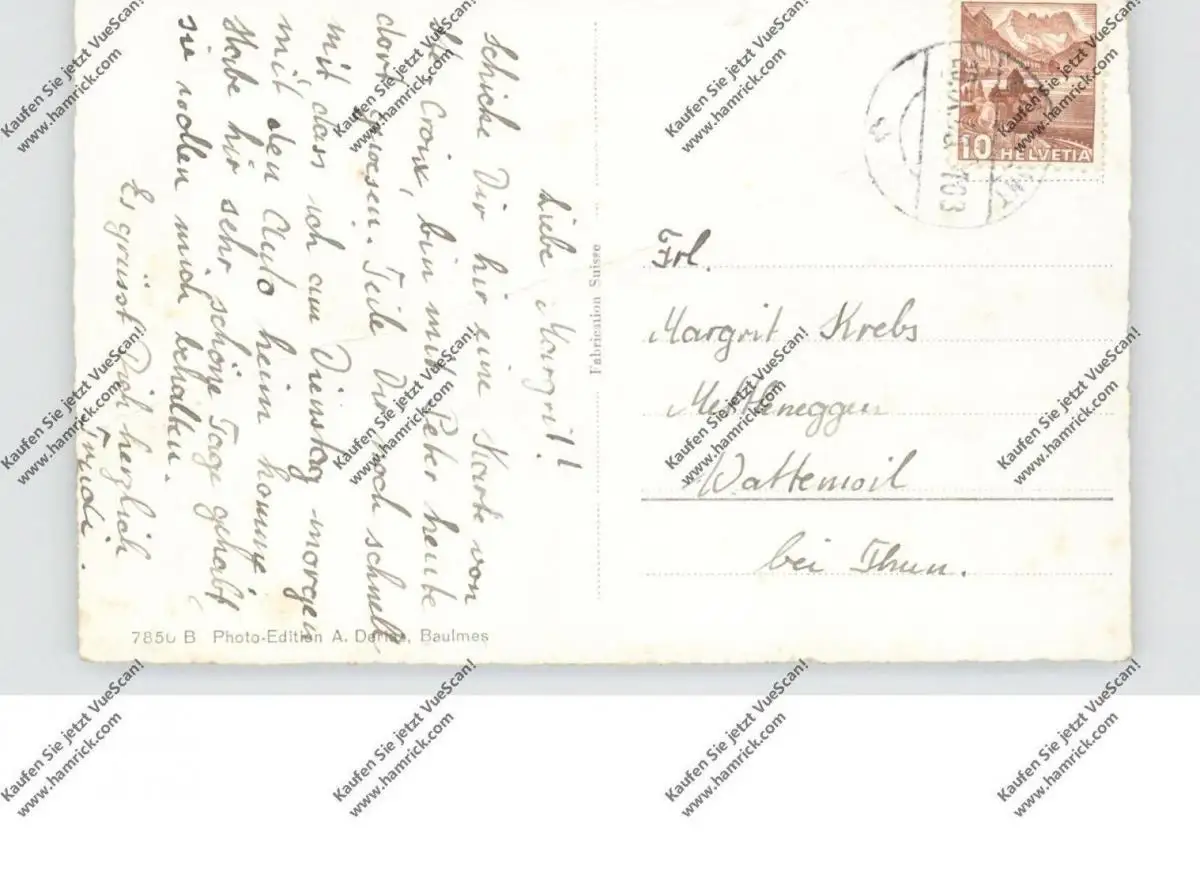 Liebe Margrit!
Schicke Dir hir eine Karte von
St. Croix, bin mit Peter heute
dort gwesen. Teile Dir noch schnell
mit dass ich am Dienstag morgen
mit den Auto heim komme
Habe hir sehr schöne Tage gehabt,
sie wollen mich behalten.
Es grüsst Dich herzlich
Trudi.
7850 B Photo-Edition A. Baulmes
Fabrication Suisse
10 HELVETIA
Frl.
Margrit Krebs
Mettleneggen
Wattenwil
bei Thun.
Kaufen Sie jetzt VueScan!
www.hamrick.com